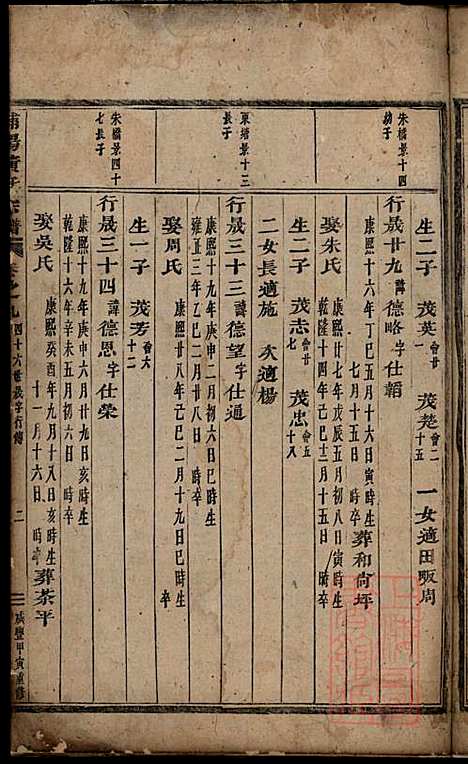 生二子 茂英會廿一 茂楚會二十五 一女適田畈周
朱橋景十四幼子
行晟廿九諱德略字仕韜
康熙十六年丁巳五月十六日寅時生
七月十五日 時卒 葬和尚坪
娶朱氏 康熙廿七年戊辰五月初八日寅時生
乾隆十四年己巳十二月十五日 時卒
生二子 茂志會廿七 茂忠會五十八
二女長適施 次適楊
東塘景十三長子
行晟三十三諱德望字仕通
康熙十九年庚申二月初六日 時生
雍正三年乙巳二月廿八日 時卒
娶周氏 康熙廿八年己巳二月十九日巳時生
時卒
生一子 茂芳會六十二
朱橋景四十七長子
行晟三十四諱德恩字仕榮
康熙十九年庚申六月廿九日亥時生
乾隆十六年辛未五月初六日 時卒
娶吳氏 康熙癸酉年九月初三日亥時生
十一月十六日 時卒 葬茶平
卷之九 四十六世晟字行傳 二 咸豐甲寅重修